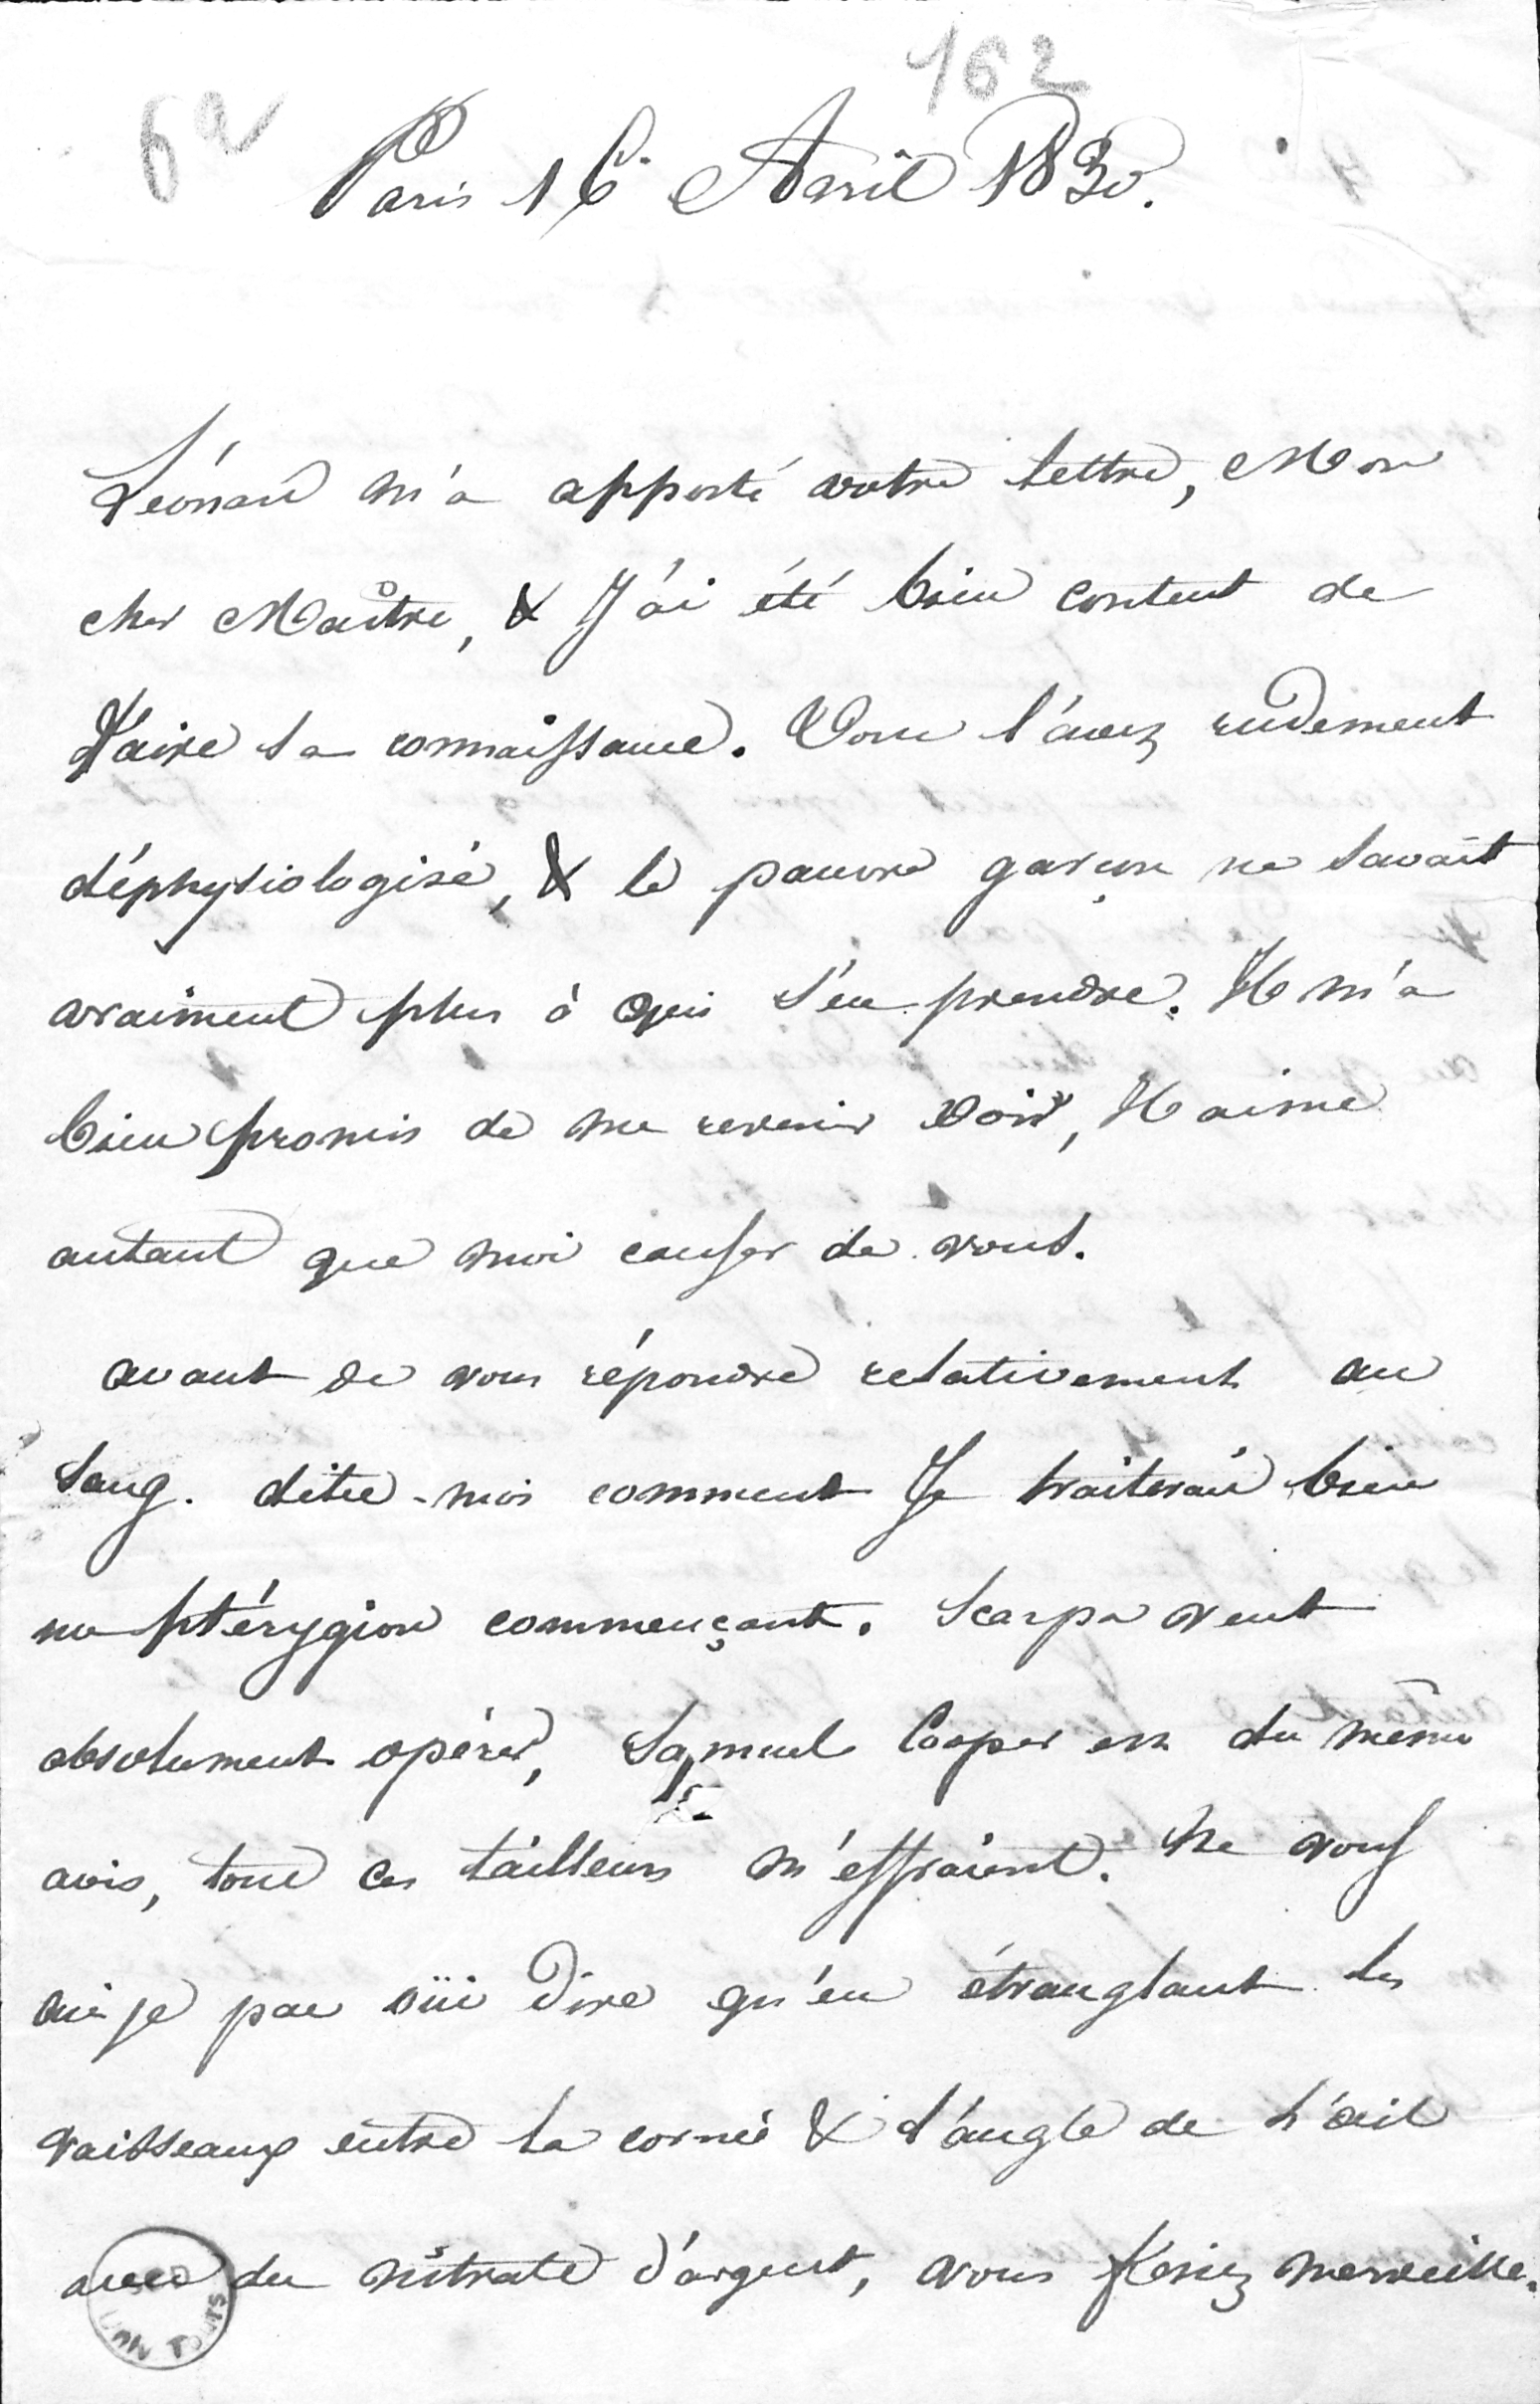 162
6a
Paris 16 Avril 1830.
Léonard m'a apporté votre lettre, Mon
cher Maître, & J'ai été bien content de
faire sa connaissance. Vous l'avez rudement
déphysiologisé, & le pauvre garçon ne savait
vraiment plus à qui s'en prendre. Il m'a
bien promis de me revenir voir, Il aime
autant que moi causer de vous.
avant de vous répondre relativement au
sang. dites-moi comment Je traiterai bien
un ptérygion commençant. Scarpa veut
absolument opérer, Samuel Cooper est du même
avis, tous ces tailleurs m'effraient. Ne vous
ai-je pas oüi dire qu'en étranglant les
vaisseaux entre la cornée & l'angle de l'œil
avec du nitrate d'argent, vous feriez merveille.